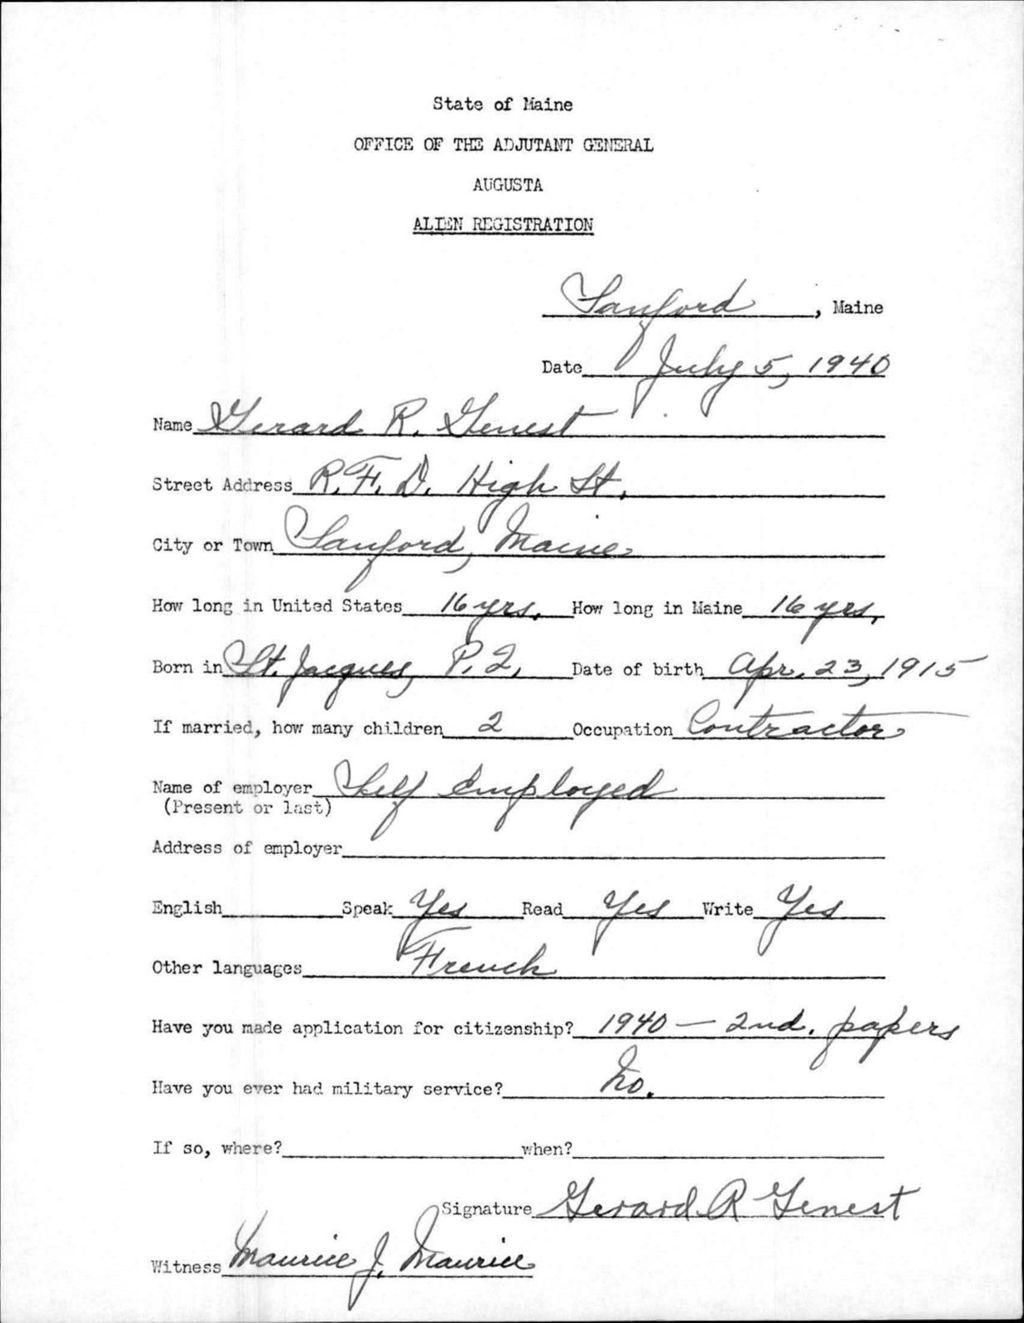 State of Maine
OFFICE OF THE ADJUTANT GENERAL
AUGUSTA
ALIEN REGISTRATION
Sanford, Maine
Date July 5, 1940
Name Gerard R. Genest
Street Address R.F.D. High St.
City or Town Sanford, Maine
How long in United States 16 yrs. How long in Maine 16 yrs.
Born in St. Jacques, P.Q. Date of birth Apr. 23, 1915
If married, how many children 2 Occupation Contractor
Name of employer Self employed
(Present or last)
Address of employer
English Speak Yes Read Yes Write Yes
Other languages French
Have you made application for citizenship? 1940 — 2nd. papers
Have you ever had military service? No.
If so, where? when?
Signature Gerard R Genest
Witness Maurice J. Maurice